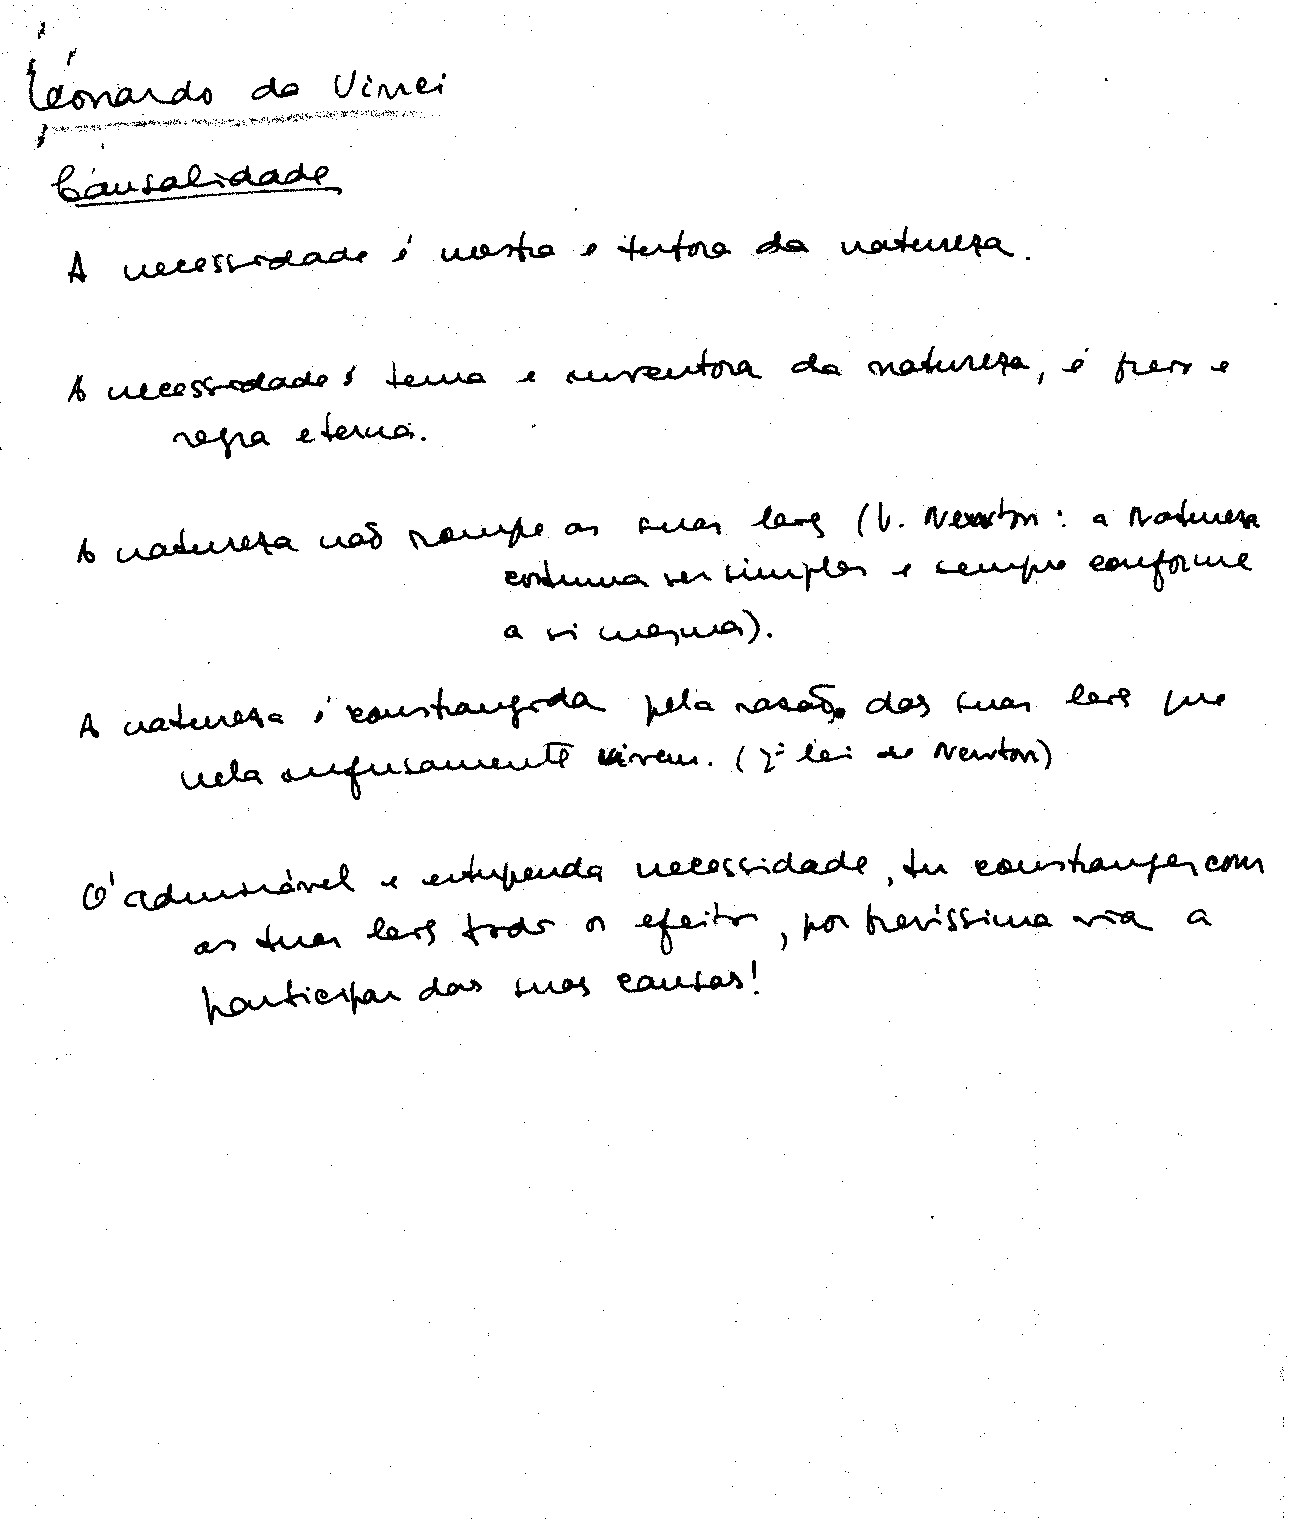 Leonardo da Vinci
Causalidade
A necessidade é mestra e tutora da natureza.
A necessidade é tema e inventora da natureza, é freio e
regra eterna.
A natureza não rompe as suas leis (V. Newton: a Natureza
continua ser simples e sempre conforme
a si mesma).
A natureza é constrangida pela razão das suas leis que
nela infusamente vivem. (2ª lei de Newton)
Ó admirável e estupenda necessidade, tu constranges com
as tuas leis todos os efeitos, por brevíssima via a
participar das suas causas!